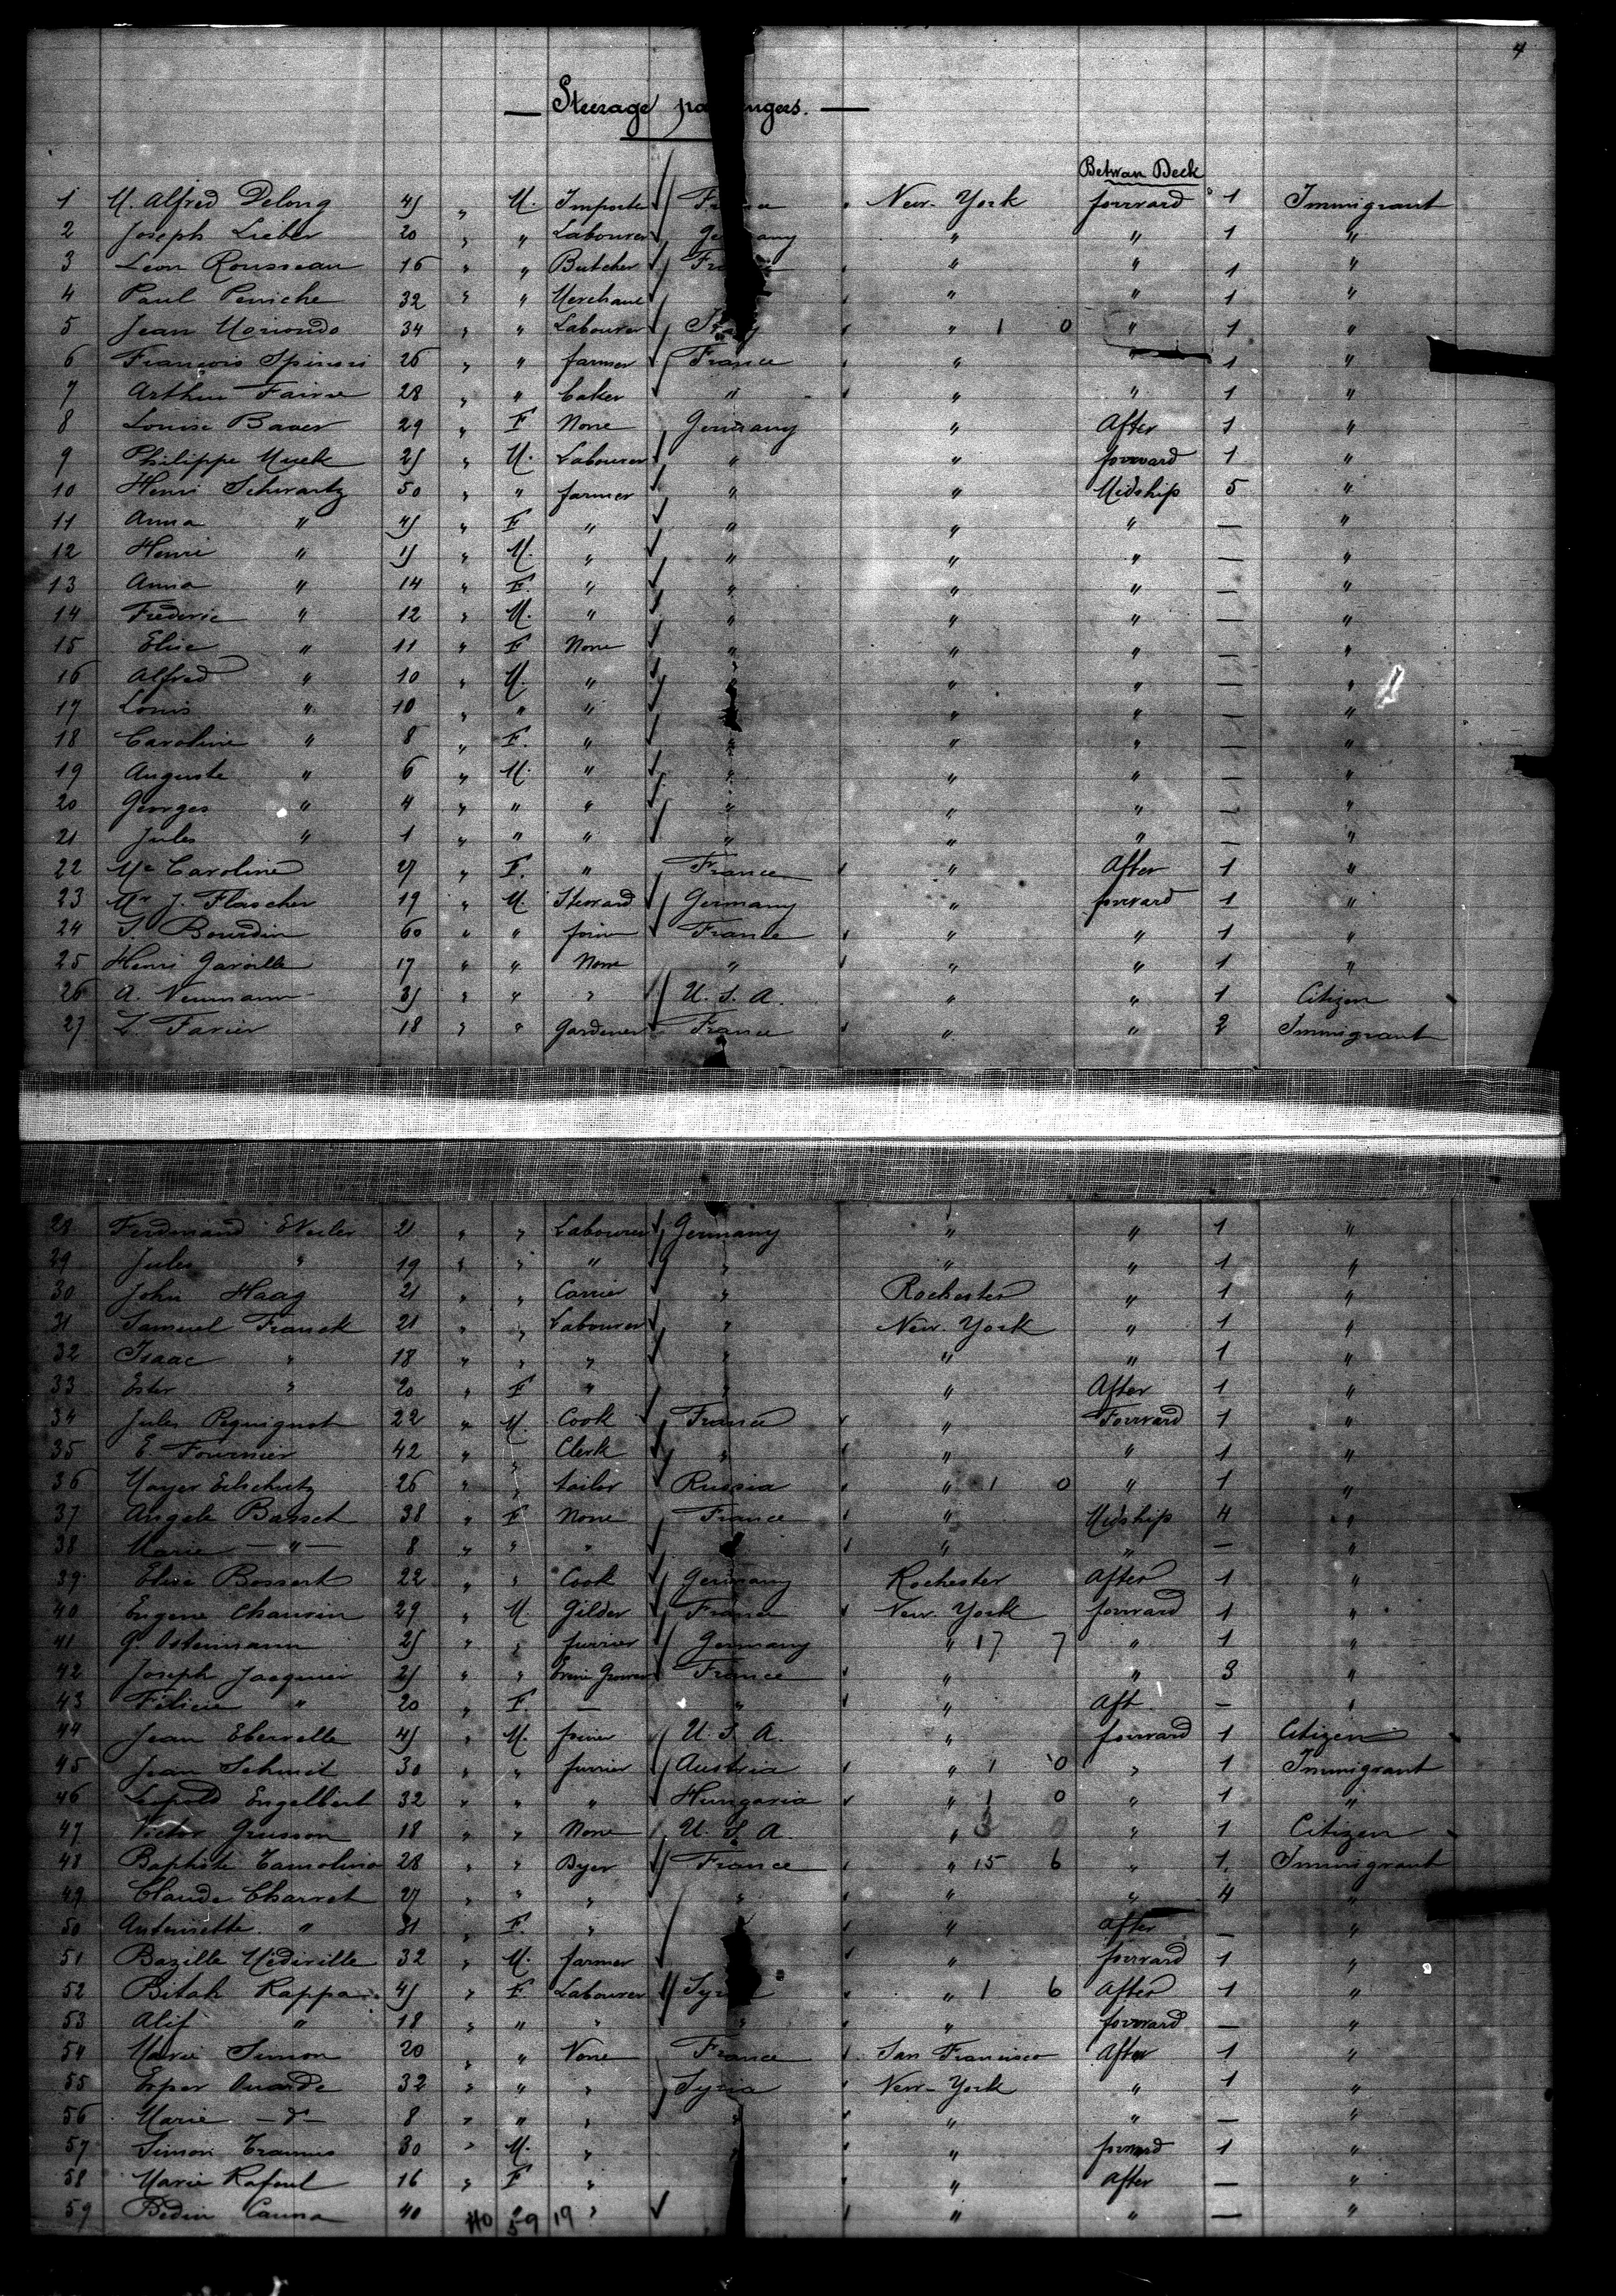 4
— Steerage pa ngers. —
Betwan Deck
1 M. Alfred Delong 45 " M. Importe Fr a " New-York forward 1 Immigrant
2 Joseph Lieber 20 " " Labourer Ge any " " 1 "
3 Leon Rousseau 16 " " Butcher Fr " " 1 "
4 Paul Peniche 32 " " Merchant " " 1 "
5 Jean Moriondo 34 " " Labourer Ita y " 1 0 " 1 "
6 François 26 " " farmer France " " 1 "
7 Arthur Faivre 28 " " baker " " " 1 "
8 Louise Bauer 29 " F None Germany " After 1 "
9 Philippe Muck 25 " M. Labourer " " forward 1 "
10 Henri Schwartz 50 " " farmer " " Midship 5 "
11 Anna " 45 " F " " " " — "
12 Henri " 15 " M. " " " " — "
13 Anna " 14 " F. " " " " — "
14 Frederic " 12 " M. " " " " — "
15 Elise " 11 " F None " " " — "
16 Alfred " 10 " M. " " " " — "
17 Louis " 10 " " " " " — "
18 Caroline " 8 " F. " " " " — "
19 Auguste " 6 " M. " " " " — "
20 Georges " 4 " " " " " " — "
21 Jules " 1 " " " " " " — "
22 Me Caroline 27 " F. " France " After 1 "
23 Mr J. Flascher 19 " M. Steward Germany " forward 1 "
24 Bourdin 60 " " France " " 1 "
25 Henri Garville 17 " " None " " " 1 "
26 A. Neumann 35 " " " U. S. A. " " 1 Citizen
27 Farier 18 " " Gardener France " " 2 Immigrant
28 Ferdinand 21 " " Labourer Germany " " 1 "
29 Jules " 19 " " " " " " 1 "
30 John Haag 21 " " Carrier " Rochester " 1 "
31 Samuel Franck 21 " " Labourer " New-York " 1 "
32 Isaac " 18 " " " " " " 1 "
33 Ester " 20 " F " " " After 1 "
34 Jules Pequignot 22 " M. Cook France " Forward 1 "
35 E. Fournier 42 " " Clerk " " " 1 "
36 Mayer 26 " " tailor Russia " 1 0 " 1 "
37 Angele Basset 38 " F None France " Midship 4 "
38 Marie — " — 8 " " " " " — "
39 Elise Bossert 22 " " Cook Germany Rochester After 1 "
40 Eugene Chauvin 29 " M. Gilder France New-York forward 1 "
41 G. Ostermann 25 " " furrier Germany " 17 7 " 1 "
42 Joseph Jacquier 25 " " Grower France " " 3 "
43 Felicie " 20 " F. — " " Aft — "
44 Jean Eberwelle 45 " M. U. S. A. " forward 1 Citizen
45 Jean Schmit 30 " " furrier Austria " 1 0 " 1 Immigrant
46 Leopold Engelbert 32 " " " Hungaria " 1 0 " 1 "
47 Victor Grusson 18 " " None U. S. A. " 3 0 " 1 Citizen
48 Baptiste Tamolino 28 " " Dyer France " 15 6 " 1 Immigrant
49 Claude Charret 27 " " " " " " 4 "
50 Antoinette " 31 " F. " " After — "
51 Bazille Médiville 32 " M. farmer " forward 1 "
52 Bitah Rappa 45 " F Labourer Sy " 1 6 After 1 "
53 Alif " 18 " " " " " forward — "
54 Marie Simon 20 " " None France San Francisco After 1 "
55 Esper Ouarde 32 " " " Syria New-York " 1 "
56 Marie — d° — 8 " " " " " " — "
57 Simon 30 " M. " " " forward 1 "
58 Marie Rafoul 16 " F " " After — "
59 Bedin Canna 40 " " " " " — "
40 59 19